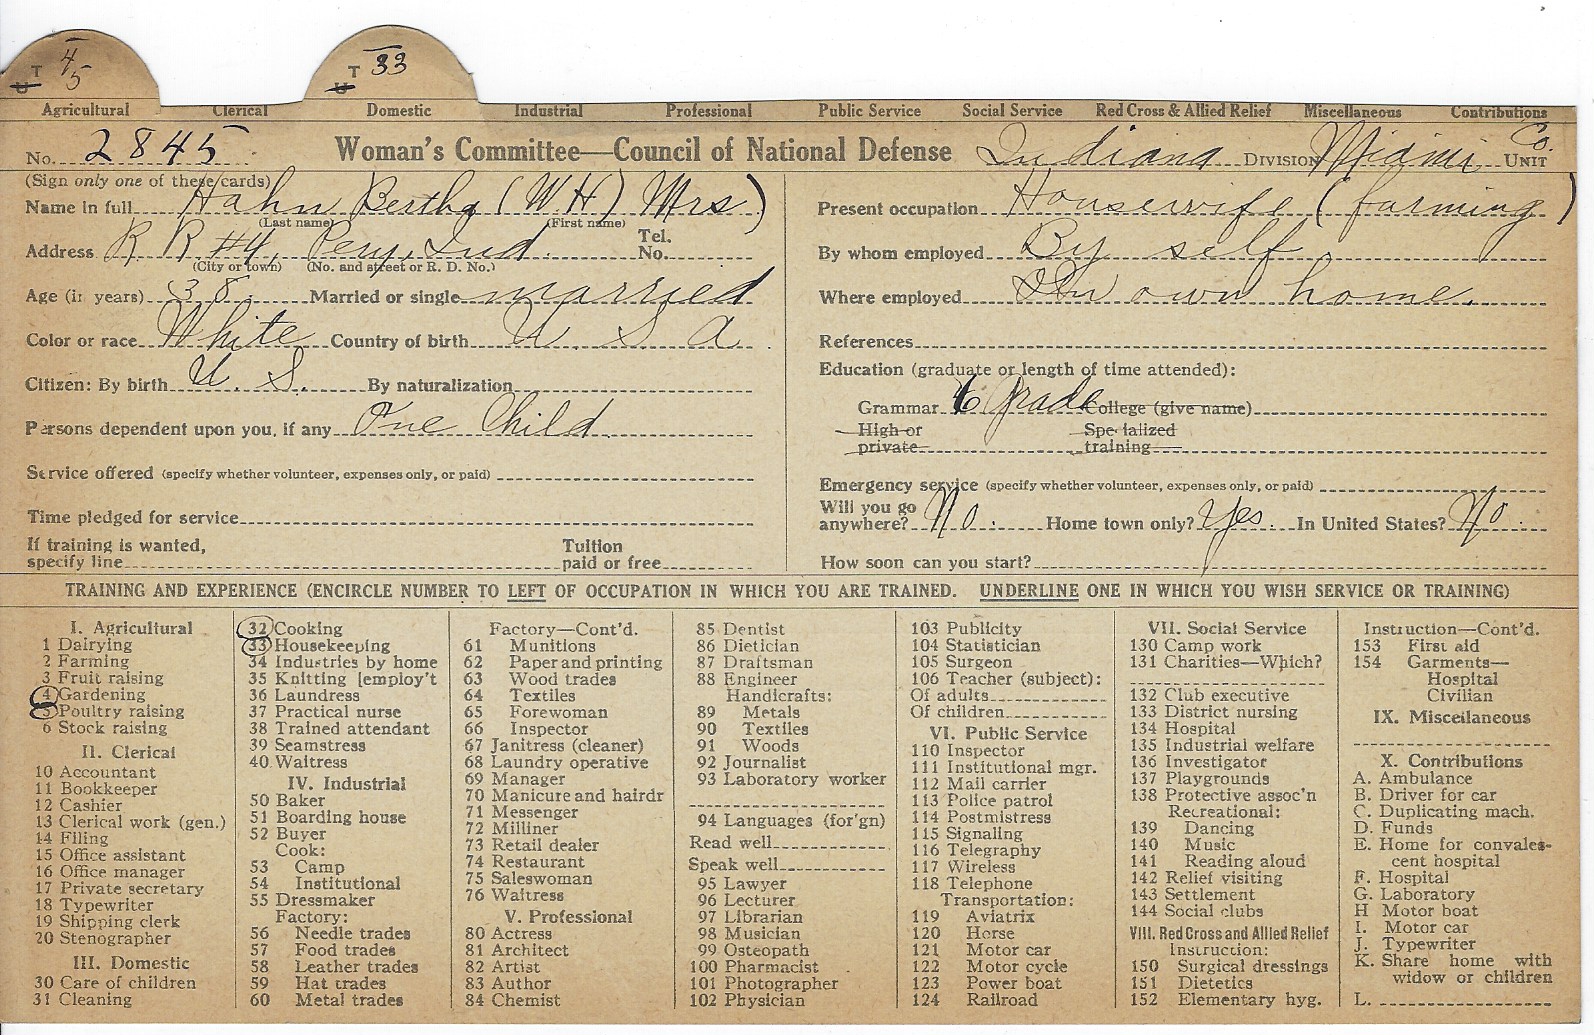 T 4 5 T 33
U U
Agricultural Clerical Domestic Industrial Professional Public Service Social Service Red Cross & Allied Relief Miscellaneous Contributions
No. 2845 Woman's Committee—Council of National Defense Indiana DIVISION Miami Co. UNIT
(Sign only one of these cards)
Name in full Hahn Bertha (W H) Mrs)
(Last name) (First name)
Address R R #4, Peru, Ind. Tel. No.
(City or town) (No. and street or R. D. No.)
Age (in years) 38. Married or single married
Color or race White Country of birth U. S A
Citizen: By birth U. S. By naturalization
Persons dependent upon you, if any One Child
Service offered (specify whether volunteer, expenses only, or paid)
Time pledged for service
If training is wanted, specify line Tuition paid or free
Present occupation Housewife (farming)
By whom employed By self
Where employed In own home.
References
Education (graduate or length of time attended):
Grammar 6 Grade College (give name)
High or private Specialized training
Emergency service (specify whether volunteer, expenses only, or paid)
Will you go anywhere? No. Home town only? Yes. In United States? No.
How soon can you start?
TRAINING AND EXPERIENCE (ENCIRCLE NUMBER TO LEFT OF OCCUPATION IN WHICH YOU ARE TRAINED. UNDERLINE ONE IN WHICH YOU WISH SERVICE OR TRAINING)
I. Agricultural
1 Dairying
2 Farming
3 Fruit raising
4 Gardening
5 Poultry raising
6 Stock raising
II. Clerical
10 Accountant
11 Bookkeeper
12 Cashier
13 Clerical work (gen.)
14 Filing
15 Office assistant
16 Office manager
17 Private secretary
18 Typewriter
19 Shipping clerk
20 Stenographer
III. Domestic
30 Care of children
31 Cleaning
32 Cooking
33 Housekeeping
34 Industries by home
35 Knitting [employ't
36 Laundress
37 Practical nurse
38 Trained attendant
39 Seamstress
40 Waitress
IV. Industrial
50 Baker
51 Boarding house
52 Buyer
Cook:
53 Camp
54 Institutional
55 Dressmaker
Factory:
56 Needle trades
57 Food trades
58 Leather trades
59 Hat trades
60 Metal trades
Factory—Cont'd.
61 Munitions
62 Paper and printing
63 Wood trades
64 Textiles
65 Forewoman
66 Inspector
67 Janitress (cleaner)
68 Laundry operative
69 Manager
70 Manicure and hairdr
71 Messenger
72 Milliner
73 Retail dealer
74 Restaurant
75 Saleswoman
76 Waitress
V. Professional
80 Actress
81 Architect
82 Artist
83 Author
84 Chemist
85 Dentist
86 Dietician
87 Draftsman
88 Engineer
Handicrafts:
89 Metals
90 Textiles
91 Woods
92 Journalist
93 Laboratory worker
94 Languages (for'gn)
Read well
Speak well
95 Lawyer
96 Lecturer
97 Librarian
98 Musician
99 Osteopath
100 Pharmacist
101 Photographer
102 Physician
103 Publicity
104 Statistician
105 Surgeon
106 Teacher (subject):
Of adults
Of children
VI. Public Service
110 Inspector
111 Institutional mgr.
112 Mail carrier
113 Police patrol
114 Postmistress
115 Signaling
116 Telegraphy
117 Wireless
118 Telephone
Transportation:
119 Aviatrix
120 Horse
121 Motor car
122 Motor cycle
123 Power boat
124 Railroad
VII. Social Service
130 Camp work
131 Charities—Which?
132 Club executive
133 District nursing
134 Hospital
135 Industrial welfare
136 Investigator
137 Playgrounds
138 Protective assoc'n
Recreational:
139 Dancing
140 Music
141 Reading aloud
142 Relief visiting
143 Settlement
144 Social clubs
VIII. Red Cross and Allied Relief
Instruction:
150 Surgical dressings
151 Dietetics
152 Elementary hyg.
Instruction—Cont'd.
153 First aid
154 Garments—
Hospital
Civilian
IX. Miscellaneous
X. Contributions
A. Ambulance
B. Driver for car
C. Duplicating mach.
D. Funds
E. Home for convales-
cent hospital
F. Hospital
G. Laboratory
H Motor boat
I. Motor car
J. Typewriter
K. Share home with
widow or children
L.